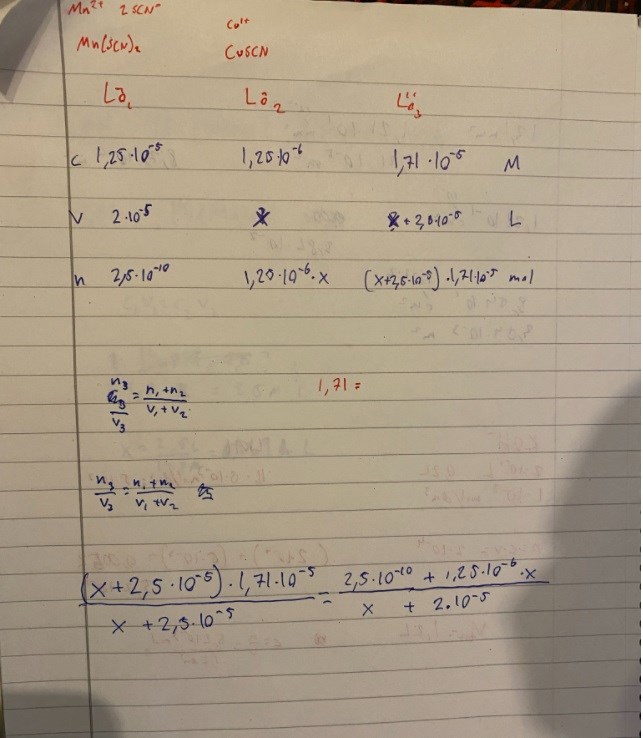 Mn²⁺ 2SCN⁻
Cu⁺
Mn(SCN)₂ CuSCN
Lö₁ Lö₂ Lö₃
c 1,25·10⁻⁵ 1,25·10⁻⁶ 1,71·10⁻⁵ M
V 2·10⁻⁵ x x + 2,5·10⁻⁵ L
n 2,5·10⁻¹⁰ 1,25·10⁻⁶·x (x+2,5·10⁻⁵)·1,71·10⁻⁵ mol
n₃/V₃ = (n₁+n₂)/(V₁+V₂) 1,71 =
n₃/V₃ = (n₁+n₂)/(V₁+V₂)
((x + 2,5·10⁻⁵)·1,71·10⁻⁵)/(x + 2,5·10⁻⁵) = (2,5·10⁻¹⁰ + 1,25·10⁻⁶·x)/(x + 2·10⁻⁵)